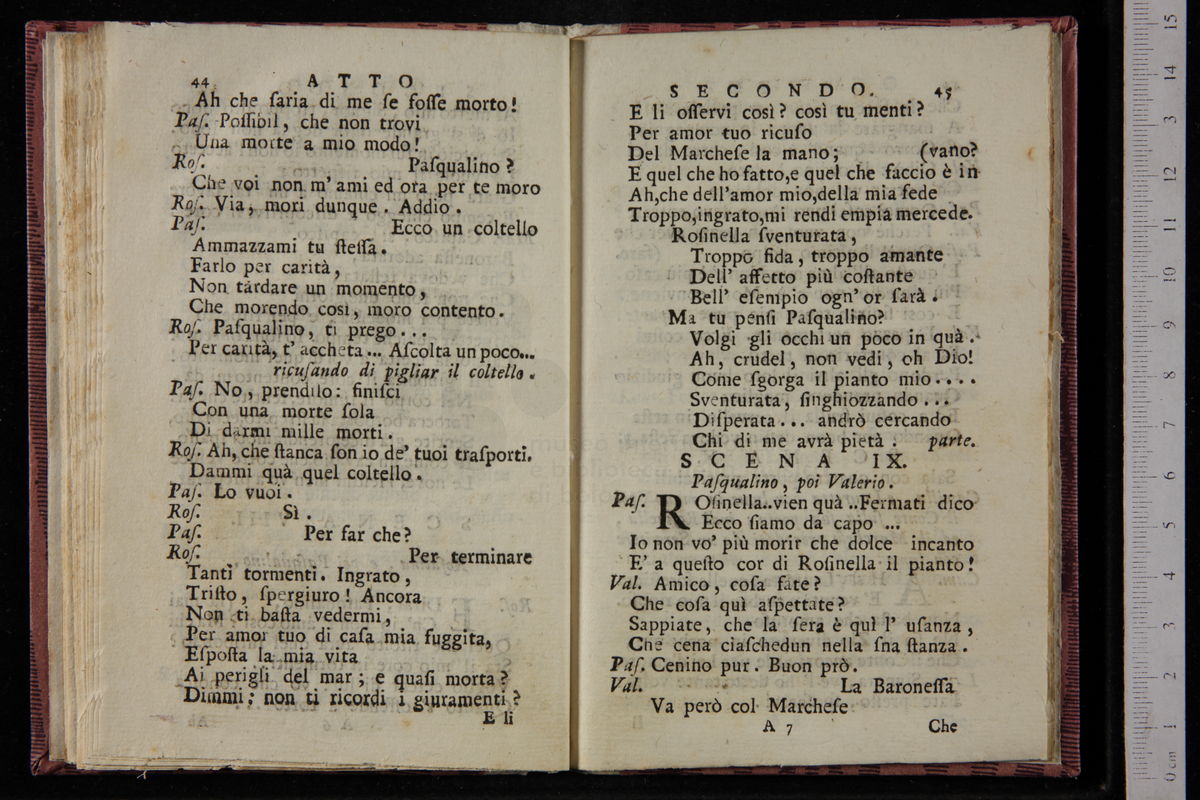 44 ATTO
Ah che ſaria di me ſe foſſe morto!
Paſ. Poſſibil, che non trovi
Una morte a mio modo!
Roſ. Paſqualino?
Che voi non m' ami ed ora per te moro
Roſ. Via, mori dunque. Addio.
Paſ. Ecco un coltello
Ammazzami tu ſteſſa.
Farlo per carità,
Non tardare un momento,
Che morendo così, moro contento.
Roſ. Paſqualino, ti prego...
Per carità, t' accheta... Aſcolta un poco...
ricuſando di pigliar il coltello.
Paſ. No, prendilo: finiſci
Con una morte ſola
Di darmi mille morti.
Roſ. Ah, che ſtanca ſon io de' tuoi traſporti.
Dammi quà quel coltello.
Paſ. Lo vuoi.
Roſ. Sì.
Paſ. Per far che?
Roſ. Per terminare
Tanti tormenti. Ingrato,
Triſto, ſpergiuro! Ancora
Non ti baſta vedermi,
Per amor tuo di caſa mia fuggita,
Eſpoſta la mia vita
Ai perigli del mar; e quaſi morta?
Dimmi; non ti ricordi i giuramenti?
E li
SECONDO. 45
E li oſſervi così? così tu menti?
Per amor tuo ricuſo
Del Marcheſe la mano; (vano?
E quel che ho fatto,e quel che faccio è in
Ah,che dell'amor mio,della mia fede
Troppo,ingrato,mi rendi empia mercede.
Roſinella ſventurata,
Troppo fida, troppo amante
Dell' affetto più coſtante
Bell' eſempio ogn' or ſarà.
Ma tu penſi Paſqualino?
Volgi gli occhi un poco in quà.
Ah, crudel, non vedi, oh Dio!
Come ſgorga il pianto mio....
Sventurata, ſinghiozzando...
Diſperata... andrò cercando
Chi di me avrà pietà. parte.
SCENA IX.
Paſqualino, poi Valerio.
Paſ. ROſinella..vien quà..Fermati dico
Ecco ſiamo da capo ...
Io non vo' più morir che dolce incanto
E' a queſto cor di Roſinella il pianto!
Val. Amico, coſa fate?
Che coſa quì aſpettate?
Sappiate, che la ſera è quì l' uſanza,
Che cena ciaſchedun nella ſna ſtanza.
Paſ. Cenino pur. Buon prò.
Val. La Baroneſſa
Va però col Marcheſe
A 7 Che
15
14
13
12
11
10
9
8
7
6
5
4
3
2
1
0 cm